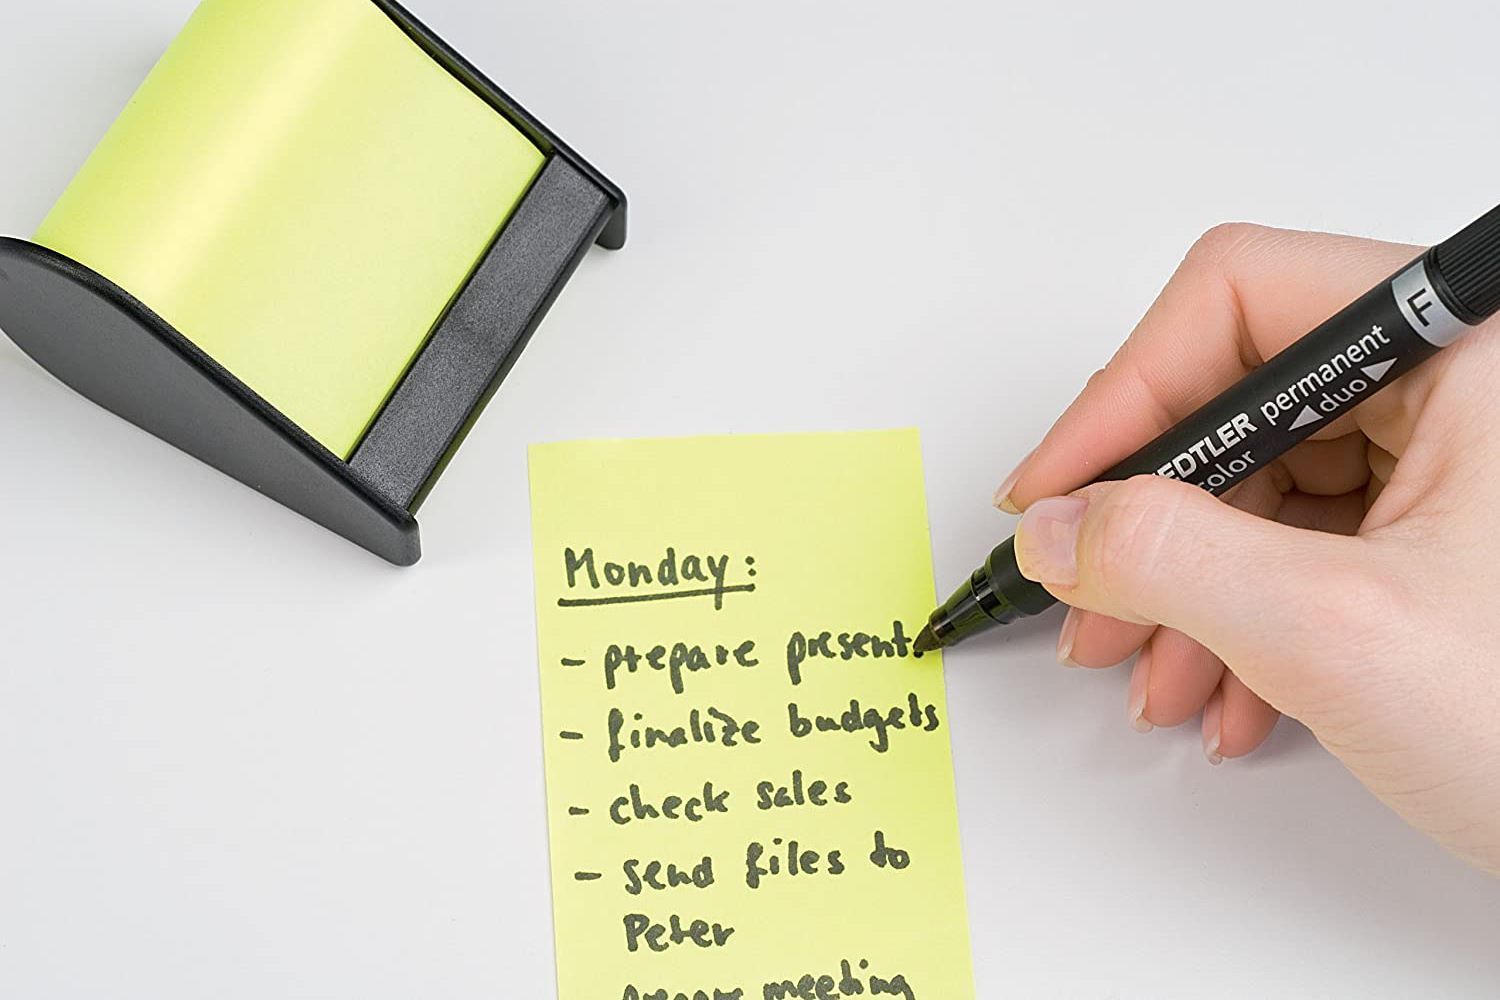 Monday:
- prepare present.
- finalize budgets
- check sales
- send files to
Peter
prepare meeting
EDTLER permanent
color duo
F